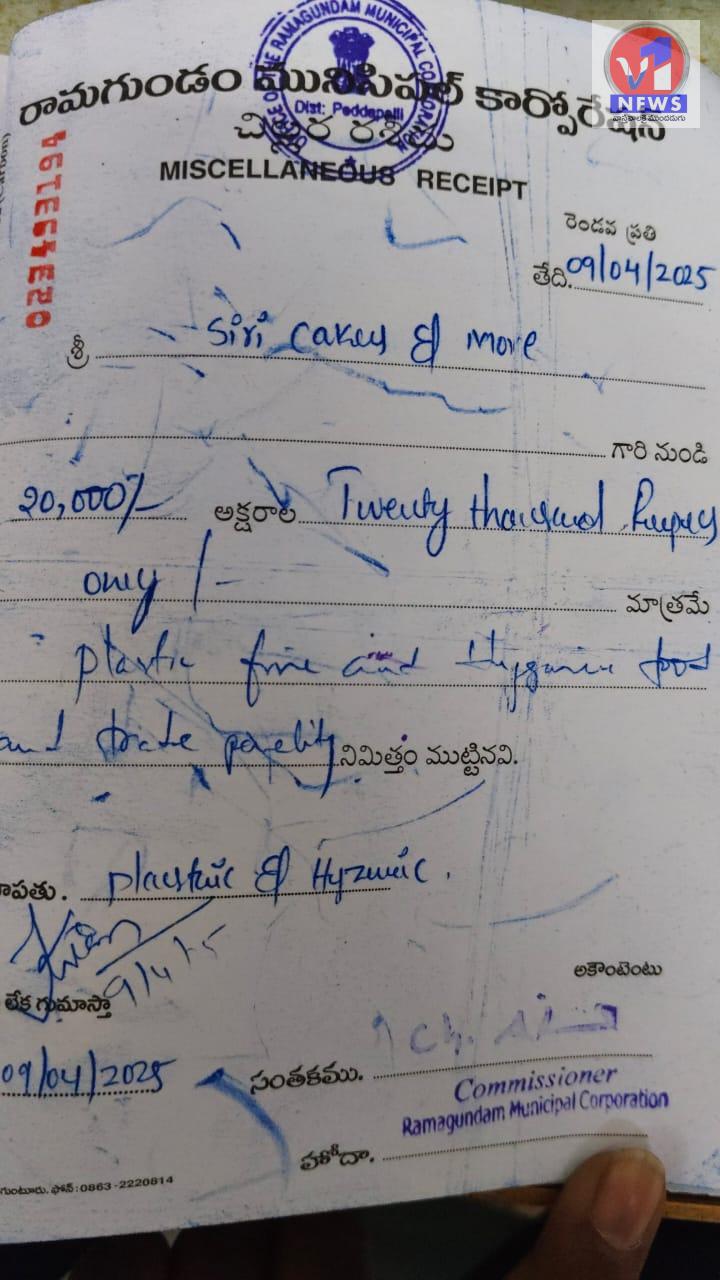 V1
NEWS
OFFICE OF THE RAMAGUNDAM MUNICIPAL CORPORATION
Dist: Peddapalli
రామగుండం మునిసిపల్ కార్పోరేషన్
చిల్లర రశీదు
MISCELLANEOUS RECEIPT
రెండవ ప్రతి
తేది. 09/04/2025
శ్రీ Siri Cakes & More
గారి నుండి
20,000/- అక్షరాల Twenty thousand Rupees
only/- మాత్రమే
Plastic fine and Hygenic food
and trade నిమిత్తం ముట్టినవి.
Plastic & Hygenic.
9/4/25
అకౌంటెంటు
లేక గుమాస్తా
09/04/2025
సంతకము.
Commissioner
Ramagundam Municipal Corporation
హోదా.
గుంటూరు. ఫోన్ : 0863 - 2220814